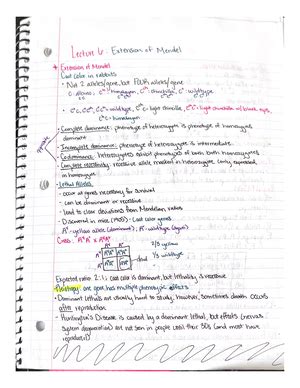 Lecture 6: Extension of Mendel
* Extension of Mendel
Coat color in rabbits
- Not 2 alleles/gene, but FOUR alleles/gene
C: albino; Cʰ: himalayan, Cᶜʰ: chinchilla, C⁺: wildtype
= wildtype, = light chinchilla, = light chinchilla w/ black tips,
= himalayan
- Complete dominance: phenotype of heterozygous is phenotype of homozygous
dominant
- Incomplete dominance: phenotype of heterozygous is intermediate.
- Codominance: heterozygotes exhibit phenotypes of both homozygotes
- Complete recessivity: recessive allele masked in heterozygote, only expressed
in homozygote
- Lethal Alleles
- occur at genes necessary for survival
- can be dominant or recessive
- lead to clear deviations from Mendelian ratios
- Discovered in mice (1905) - coat color genes
Aʸ - yellow allele (dominant); A⁺ - wildtype (agouti)
Cross: AʸA⁺ x AʸA⁺
Aʸ A⁺
2/3 yellow
1/3 wildtype
dead
Expected ratio 2:1; coat color is dominant, but lethality is recessive
Pleiotropy: one gene has multiple phenotypic effects
- Dominant lethals are usually hard to study, however, sometimes death occurs
after reproduction
- Huntington's Disease is caused by a dominant lethal, but effects (nervous
system degeneration) are not seen in people until their 30s (and most have
reproduced)